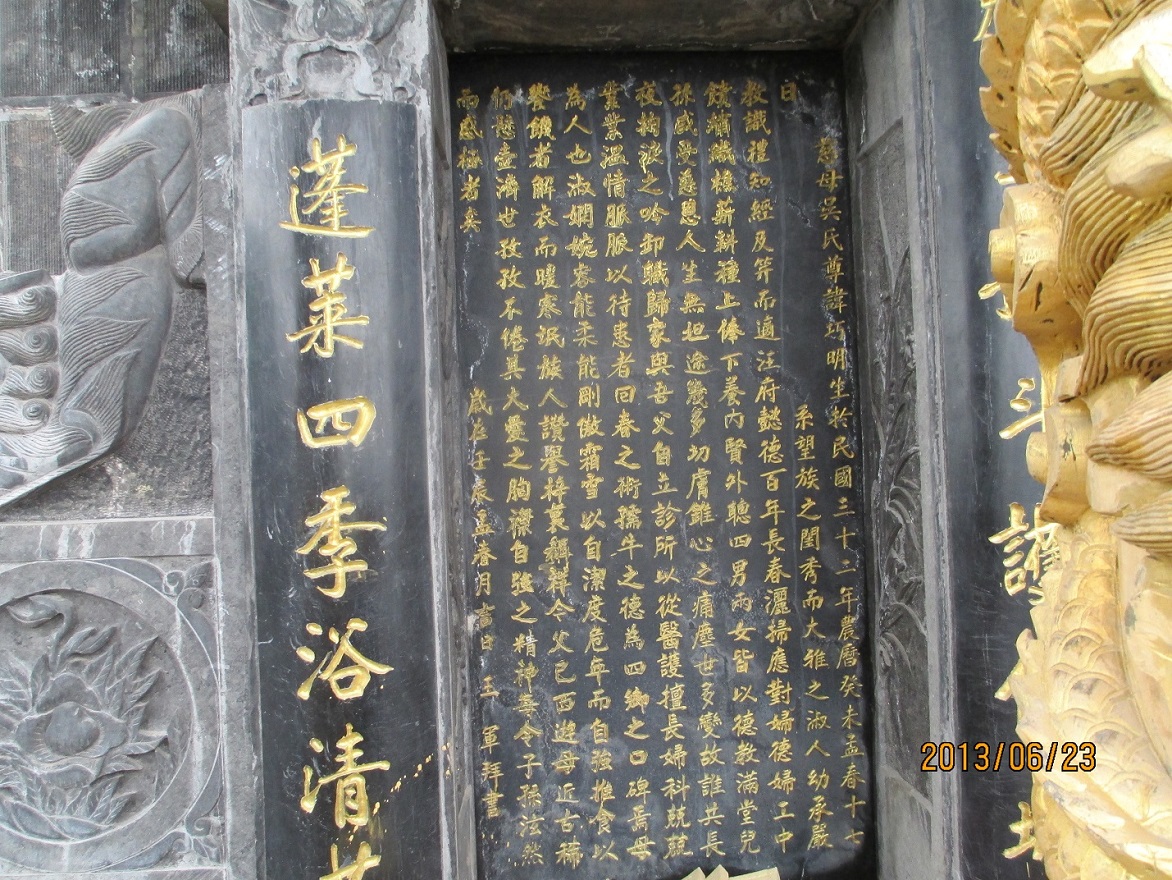 斗
讚
慈母吳氏尊諱巧明生於民國三十二年農曆癸未孟春十七
日 系望族之閨秀而大雅之淑人幼承嚴
教識禮知經及笄而適汪府懿德百年長春灑掃應對婦德婦工中
饋績織樵薪耕種上俸下養內賢外聰四男兩女皆以德教滿堂兒
孫咸受慈恩人生無坦途幾多切膚錐心之痛塵世多變故誰共長
夜搏浪之吟卸職歸家與吾父自立診所以從醫護擅長婦科兢兢
業業溫情脈脈以待患者回春之術孺牛之德為四鄉之口碑焉母
為人也淑嫻婉容能柔能剛傲霜雪以自潔度危年而自強推食以
饗饑者解衣而暖寒氓族人讚譽梓裏稱祥令父已西遊母近古稀
猶懸壺濟世孜孜不倦其大愛之胸襟自強之精神每令子孫泫然
而感極者矣 歲在壬辰孟春月吉日 王軍拜書
蓬萊四季浴清
2013/06/23